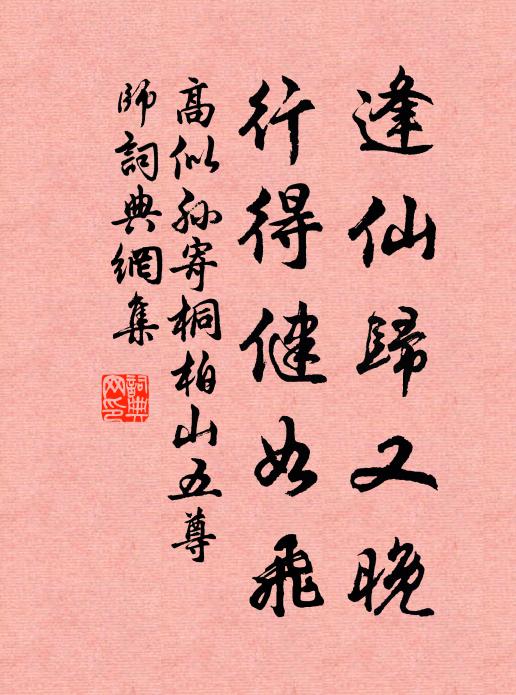 逢仙歸又晚
行得健如飛
高似孫寄桐柏山五尊
師詞典網集
詞典网印